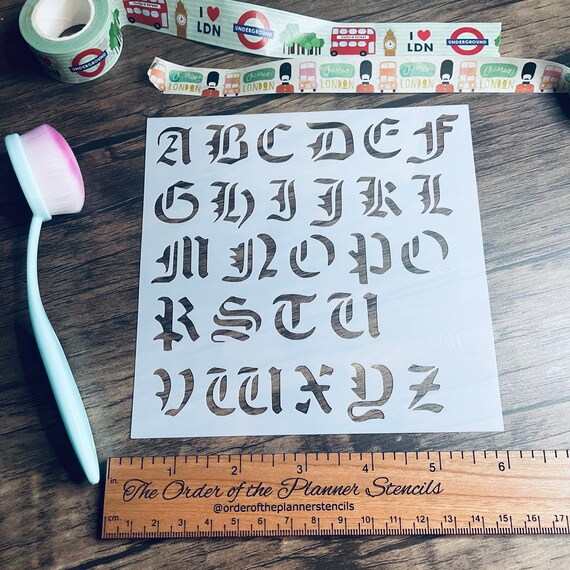 I ♥ LDN
UNDERGROUND
I ♥ LDN
UNDERGROUND
UNDERGROUND
LONDON
LONDON
A B C D E F
G H I J K L
M N O P O
R S T U
V W X Y Z
in. 1 2 3 4 5 6
The Order of the Planner Stencils
@orderoftheplannerstencils
cm. 1 2 3 4 5 6 7 8 9 10 11 12 13 14 15 16 17